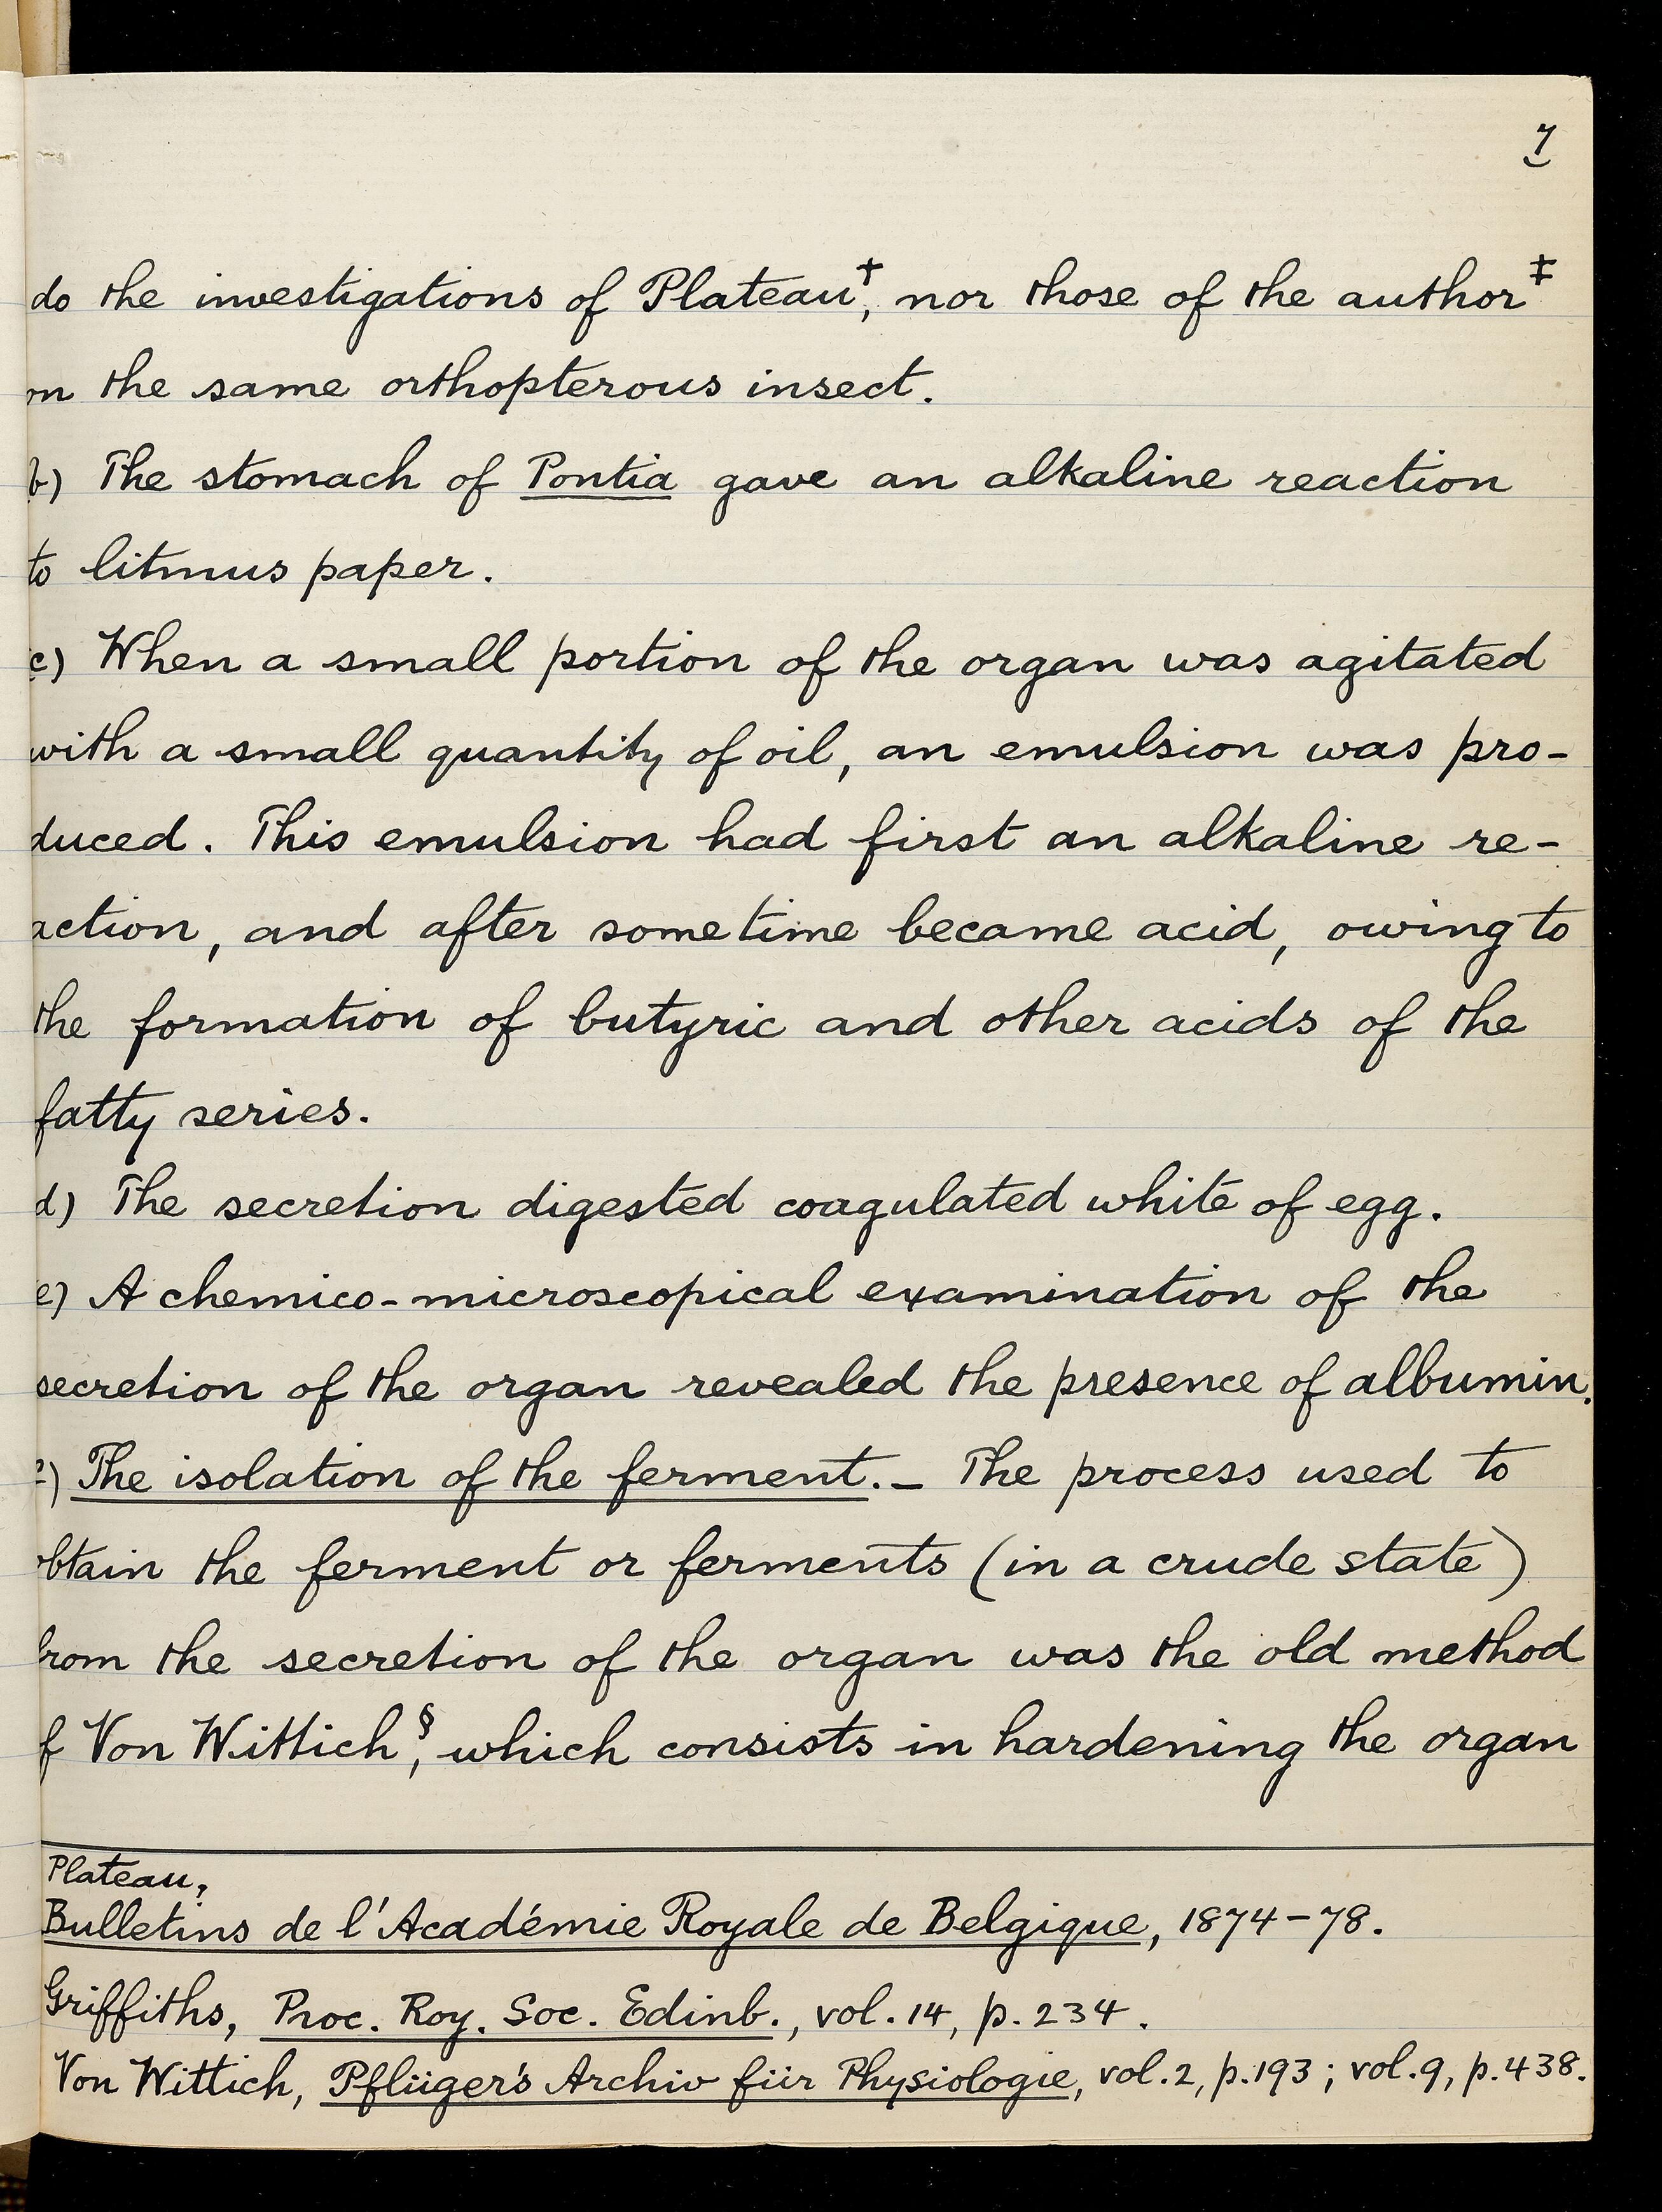 7
do the investigations of Plateau†, nor those of the author‡
on the same orthopterous insect.
b) The stomach of Pontia gave an alkaline reaction
to litmus paper.
c) When a small portion of the organ was agitated
with a small quantity of oil, an emulsion was pro-
duced. This emulsion had first an alkaline re-
action, and after sometime became acid, owing to
the formation of butyric and other acids of the
fatty series.
d) The secretion digested coagulated white of egg.
e) A chemico-microscopical examination of the
secretion of the organ revealed the presence of albumin.
) The isolation of the ferment. — The process used to
obtain the ferment or ferments (in a crude state)
from the secretion of the organ was the old method
f Von Wittich§, which consists in hardening the organ
Plateau,
Bulletins de l'Académie Royale de Belgique, 1874-78.
Griffiths, Proc. Roy. Soc. Edinb., vol. 14, p. 234.
Von Wittich, Pflüger's Archiv für Physiologie, vol. 2, p. 193; vol. 9, p. 438.